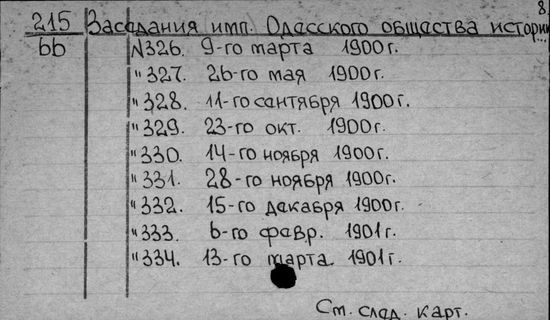 8.
215 Заседания имп. Одесского общества истории
bb №326. 9-го марта 1900г.
"327. 26-го мая 1900г.
"328. 11-го сентября 1900г.
"329. 23-го окт. 1900г.
"330. 14-го ноября 1900г.
"331. 28-го ноября 1900г.
"332. 15-го декабря 1900г.
"333. 6-го февр. 1901г.
"334. 13-го марта 1901г.
См. след. карт.